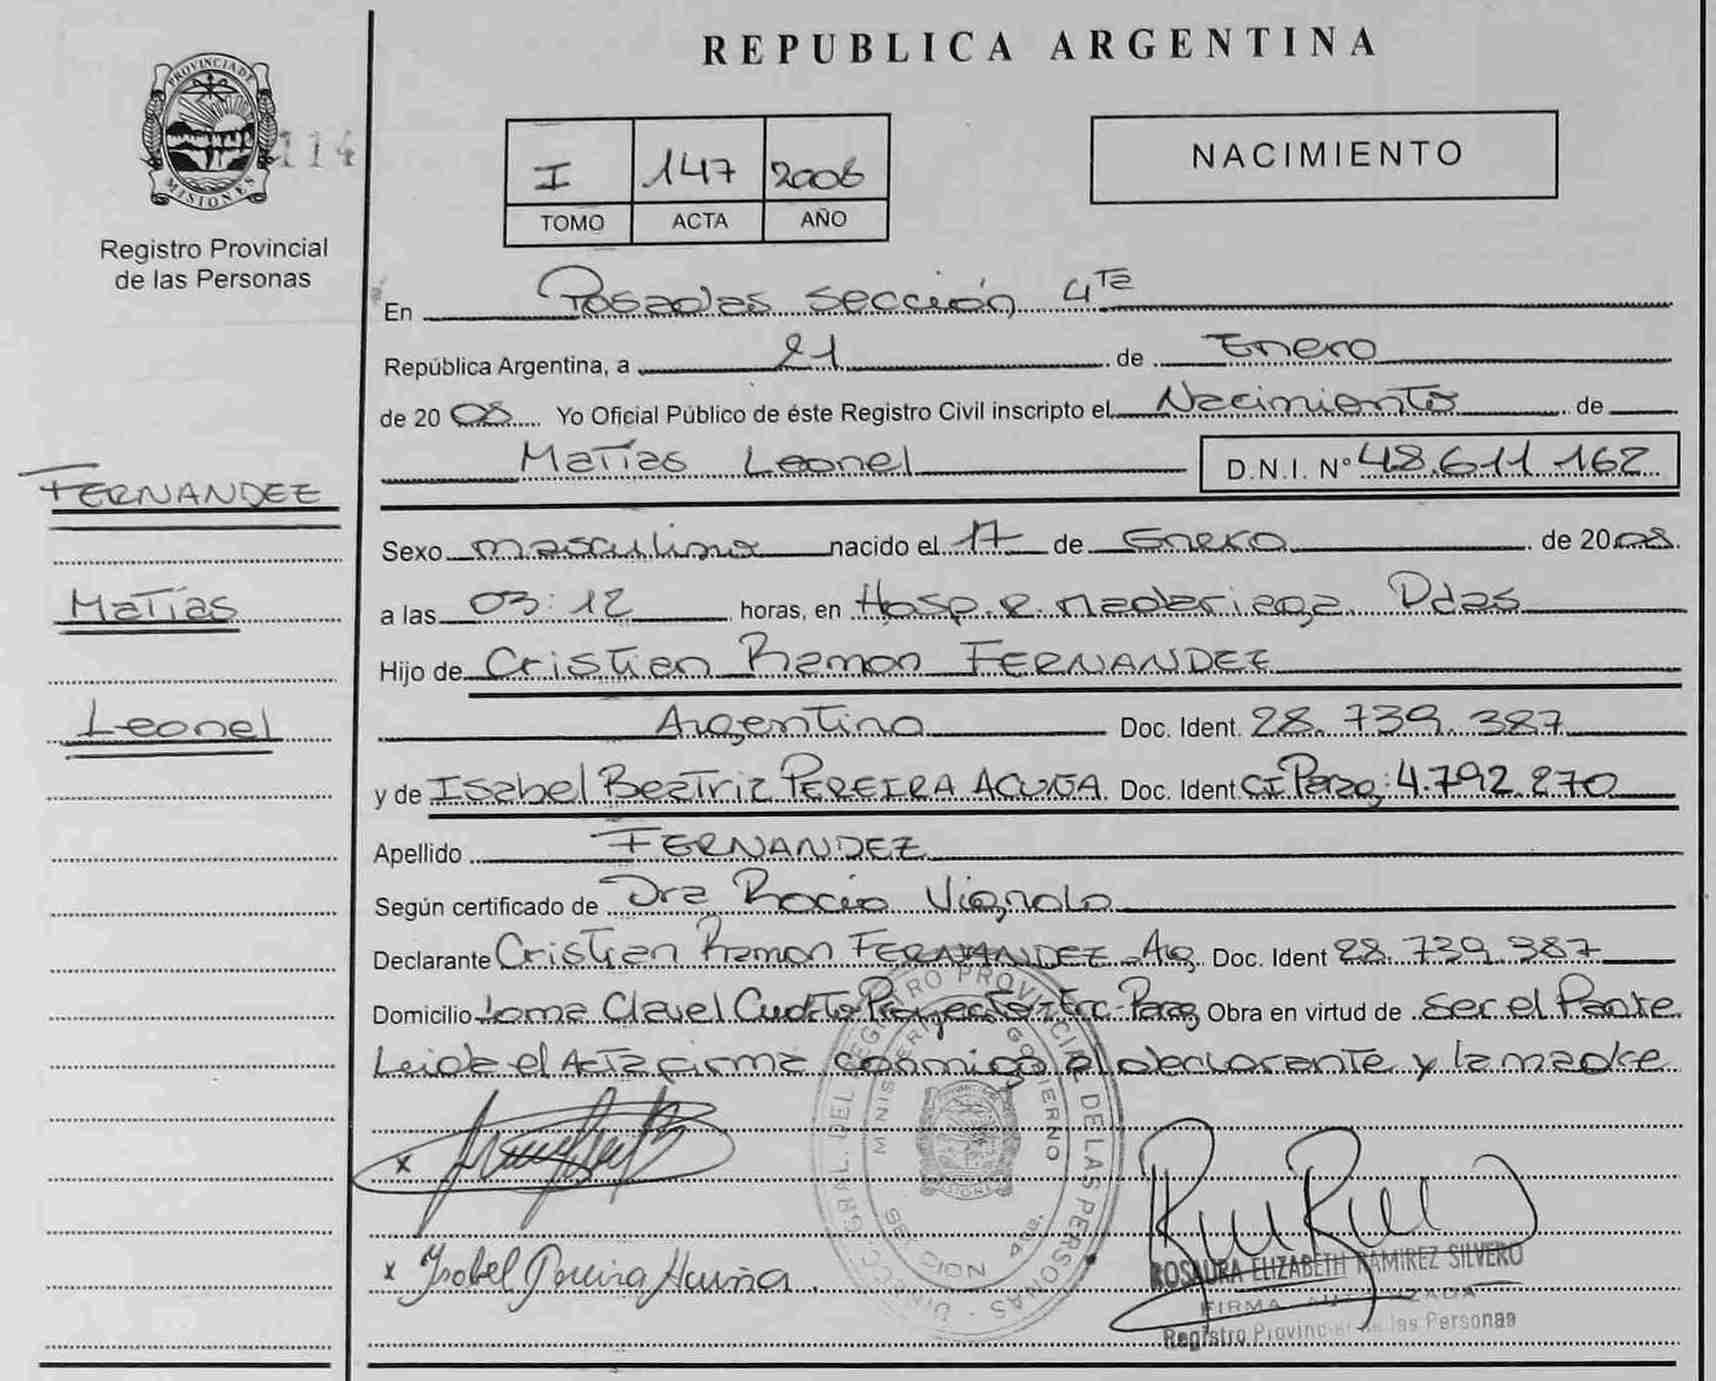 REPUBLICA ARGENTINA
PROVINCIA DE MISIONES
114
Registro Provincial
de las Personas
I 147 2006
TOMO ACTA AÑO
NACIMIENTO
En Posadas sección 4ta
República Argentina, a 21 de Enero
de 2008 Yo Oficial Público de éste Registro Civil inscripto el Nacimiento de
Matías Leonel D.N.I. N° 48.611.162
FERNANDEZ
Matías
Leonel
Sexo masculino nacido el 17 de Enero de 2008
a las 03:12 horas, en Hosp. R. Madariaga Pdas
Hijo de Cristian Ramon FERNANDEZ
Argentino Doc. Ident. 28.739.387
y de Isabel Beatriz PEREIRA ACUÑA Doc. Ident CI Parag: 4.792.270
Apellido FERNANDEZ
Según certificado de Dra Rocio Vignolo
Declarante Cristian Ramon FERNANDEZ Arg Doc. Ident 28.739.387
Domicilio Loma Clavel Parag Obra en virtud de Ser el Padre
Leida el Acta firma conmigo el declarante y la madre
x
x Isabel Pereira Acuña
DIRECC. GRAL. DEL REGISTRO PROVINCIAL DE LAS PERSONAS
MINISTERIO GOBIERNO
SECCION 4ta.
MISIONES
ROSAURA ELIZABETH RAMIREZ SILVERO
FIRMA AUTORIZADA
Registro Provincial de las Personas